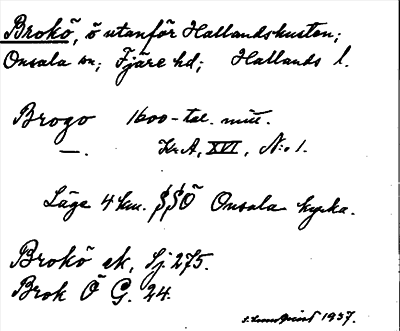 Brokö, ö utanför Hallandskusten;
Onsala sn; Fjäre hd; Hallands l.
Brogo 1600-tal. mitt.
—. Kr.A, XVI, N:o 1.
Läge 4 km. SSÖ Onsala kyrka.
Brokö ek, Sj. 275.
Brok Ö G. 24.
1937.